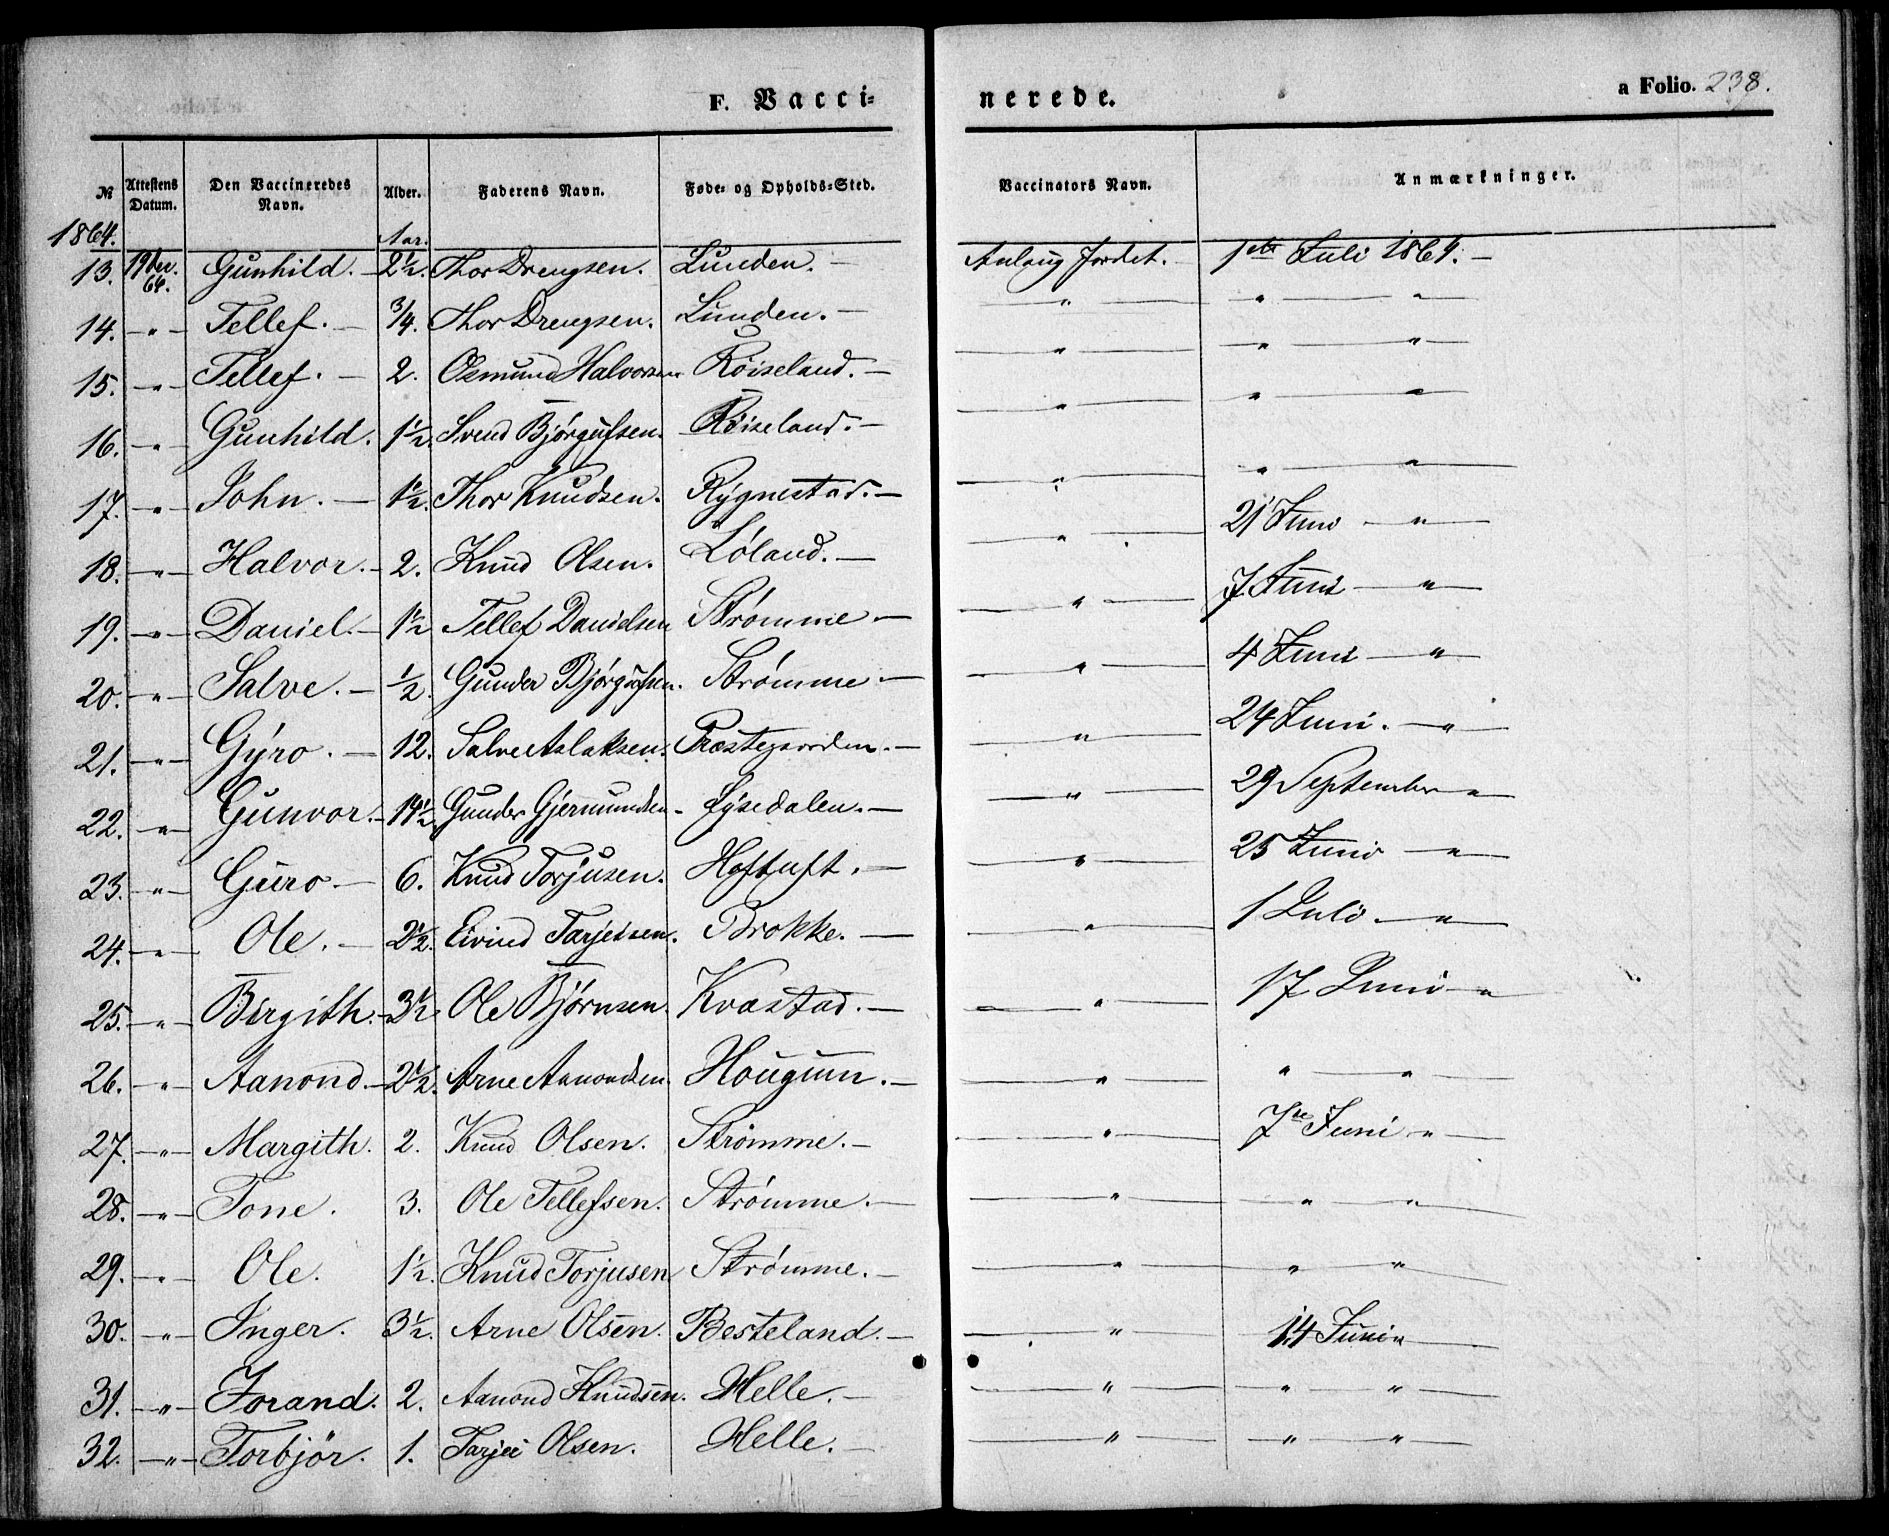 F. Vacci=
nerede.
a Folio. 238.
№ Attestens Datum. Den Vaccineredes Navn. Alder. Faderens Navn. Føde= og Opholds=Sted. Vaccinators Navn. Anmærkninger.
1864. Aar.
13. 19 Dec. 64. Gunhild. — 2½. Thor Drengsen. Lunden. — Aulaug Jordet. 1ste Juli 1864. —
14. — " — Tellef. — ¾. Thor Drengsen. Lunden. — — " — " — " —
15. — " — Tellef. — 2. Osmund Halvorsen Røiseland. — — " — " — " —
16. — " — Gunhild. 1½. Svend Bjørgufsen. Røiseland. — — " — " — " —
17. — " — John. — 1½. Thor Knudsen. Rygnestad. — — " — " — " —
18. — " — Halvor. — 2. Knud Olsen. Løland. — — " — 21 Juni — " —
19. — " — Daniel. — 1½ Tellef Danielsen Strømme — — " — 7 Juni — " —
20. — " — Salve. — ½. Gunder Bjørgufsen. Strømme — — " — 4 Juni — " —
21. — " — Gyro. — 12. Salve Aslaksen. Præstegaarden. — — " — 24 Juni. — " —
22. — " — Gunvor. — 14½. Gunder Gjermundsen — Lysedalen. — — " — 29 September — " —
23. — " — Guro. — 6. Knud Torjusen. Hoftuft. — — " — 25 Juni — " —
24. — " — Ole. — 2½. Eivind Tarjeisen. Brokke. — — " — 1 Juli — " —
25. — " — Birgith. — 3½ Ole Bjørnsen. Kvastad. — — " — 17 Juni — " —
26. — " — Aanond. — 2½. Arne Aanondsen. Hougum. — — " — " — " —
27. — " — Margith. 2. Knud Olsen. Strømme. — — " — 7de Juni — " —
28. — " — Tone. 3. Ole Tellefsen. Strømme. — — " — " — " —
29. — " — Ole. 1½. Knud Torjusen Strømme. — — " — " — " —
30. — " — Inger. 3½. Arne Olsen. Besteland. — — " — 14 Juni " —
31. — " — Jorand. 2. Aanond Knudsen. Helle. — — " — " — " —
32. — " — Torbjør. 1. Tarjei Olsen. Helle. — — " — " — " —